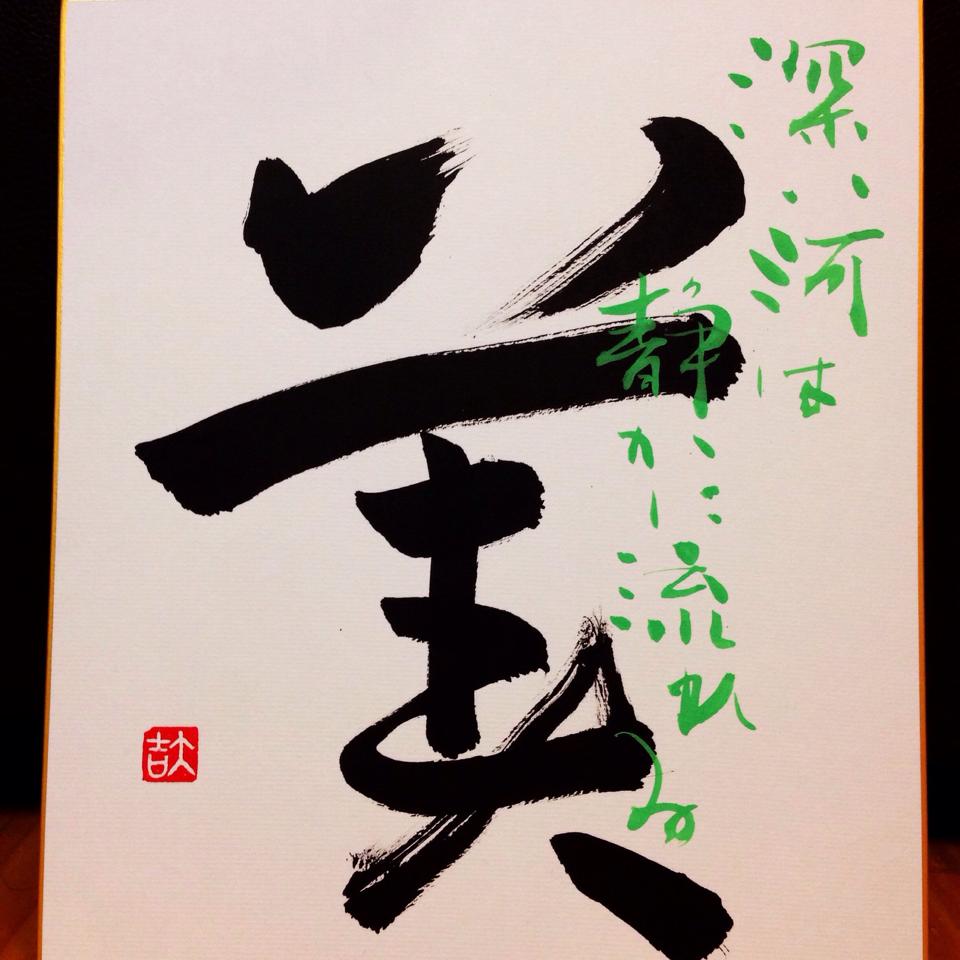 深い河は
静かに流れる
美